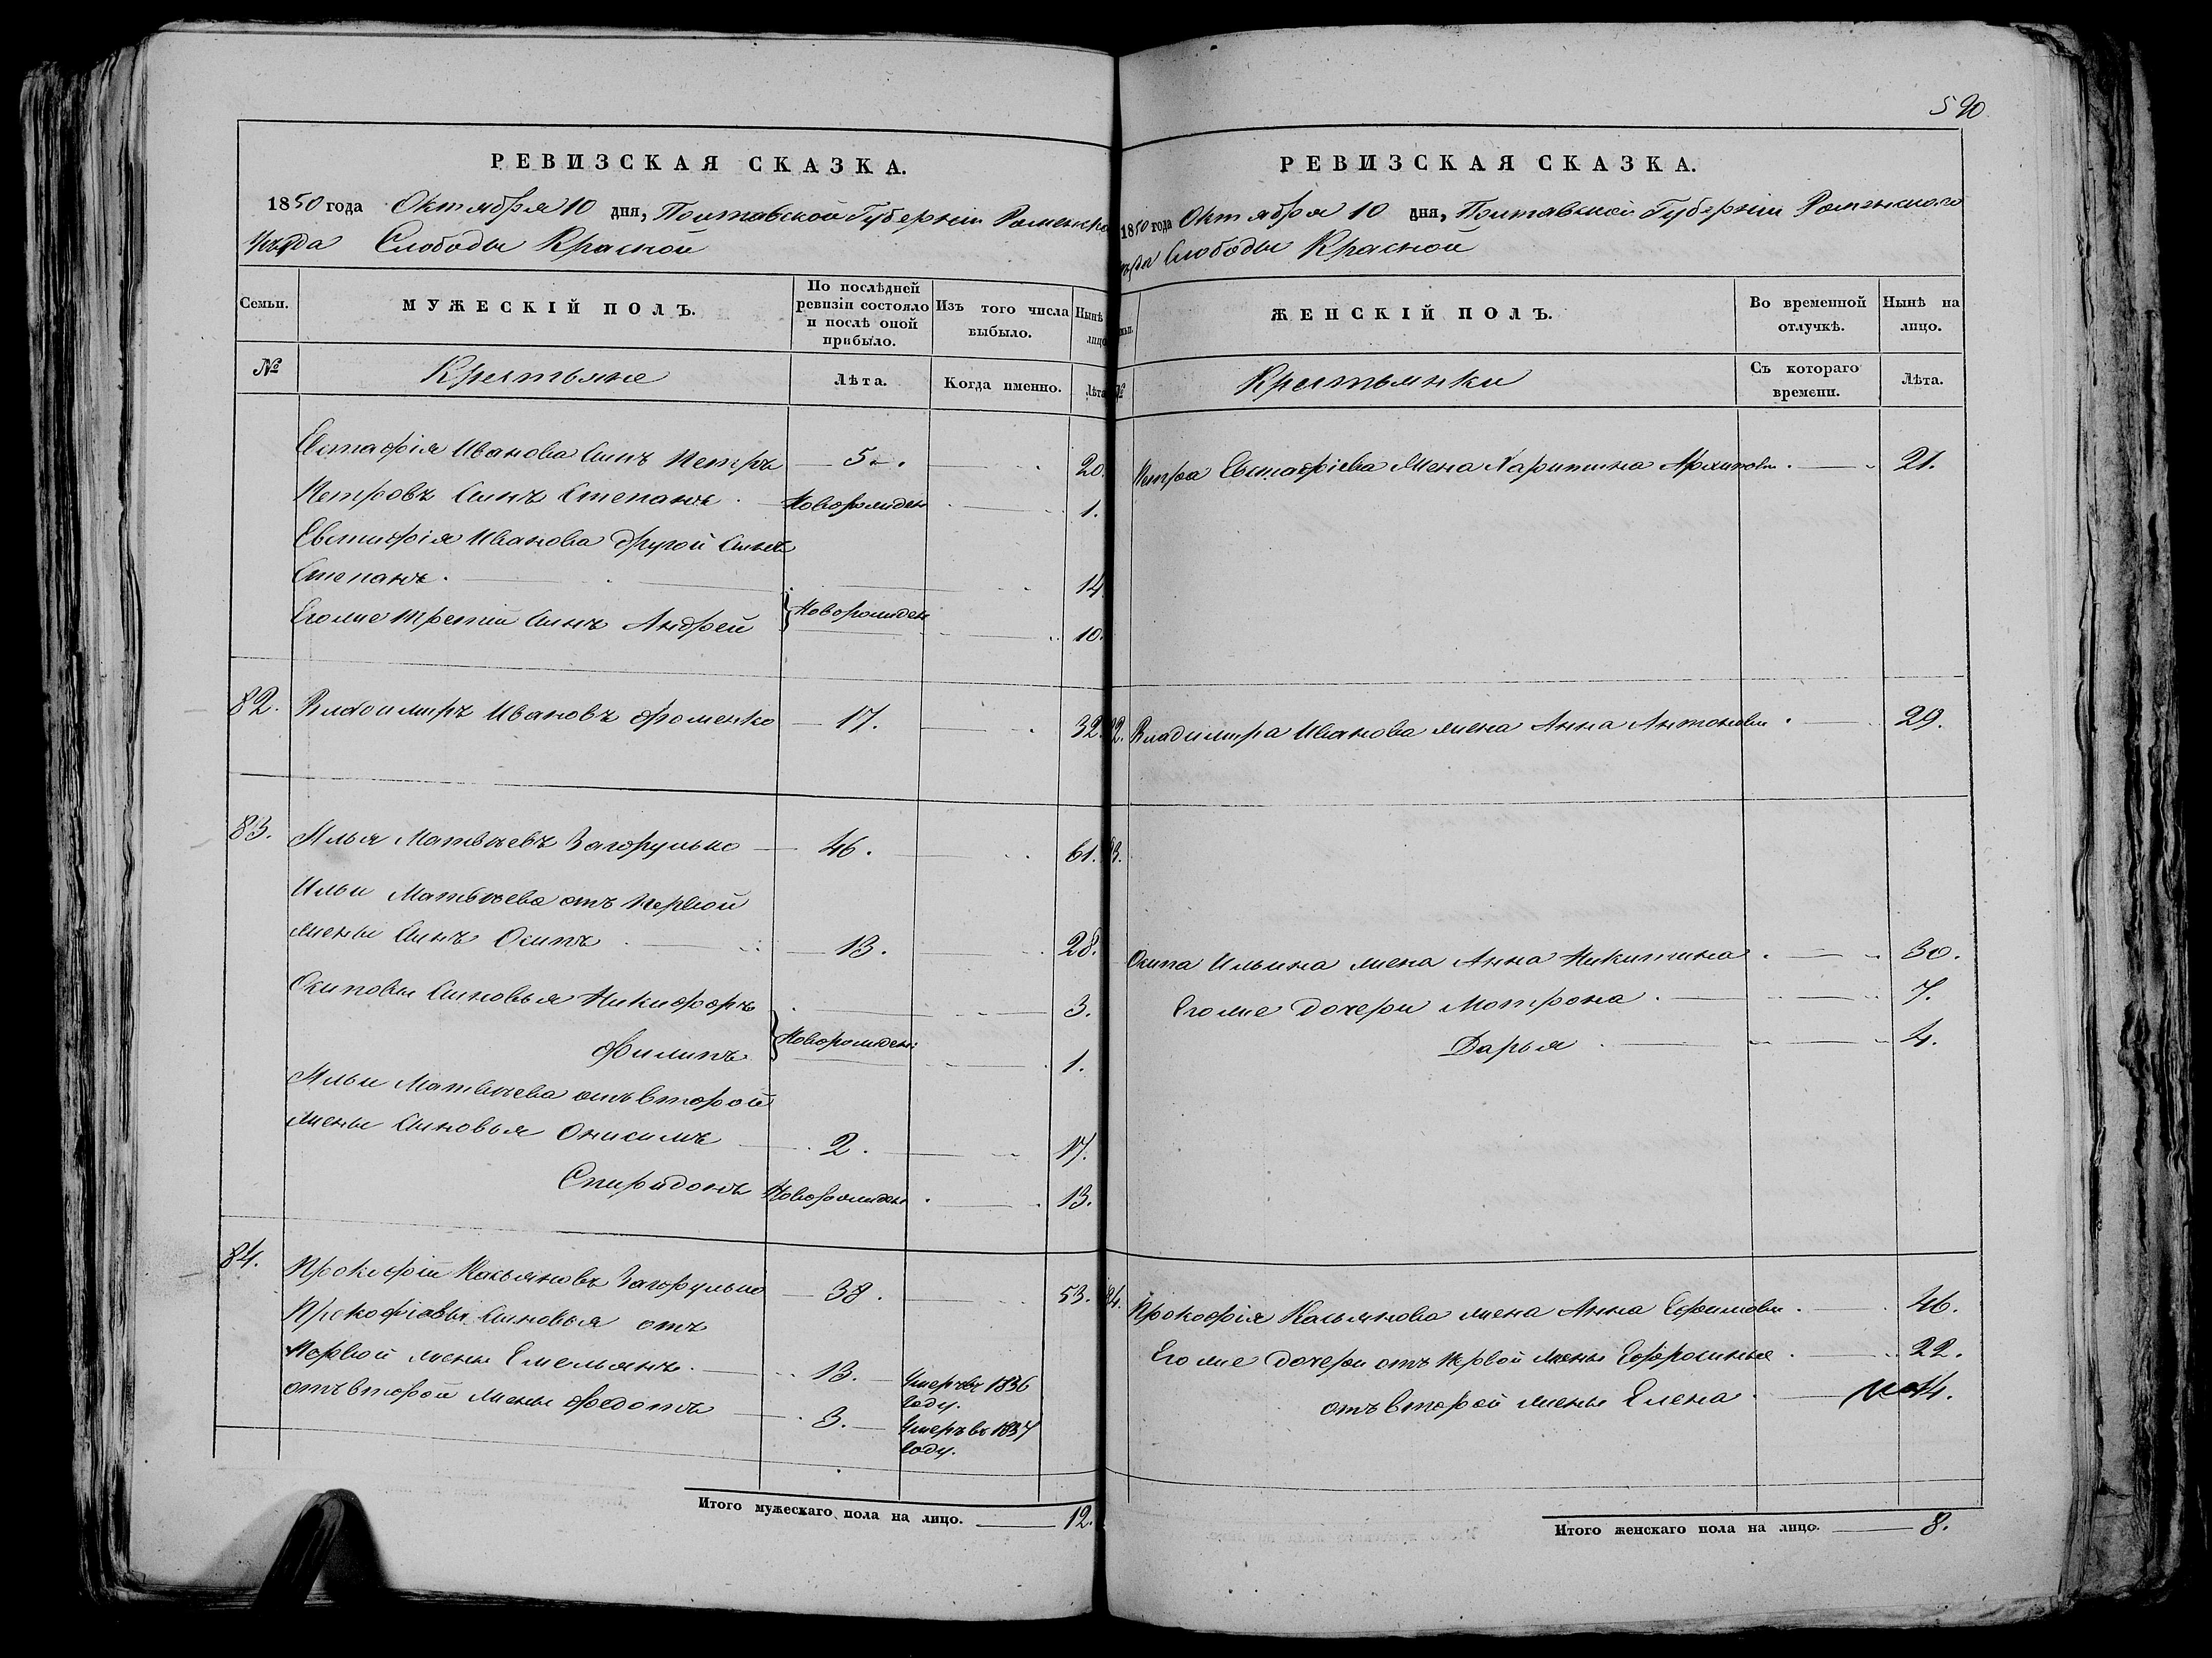 РЕВИЗСКАЯ СКАЗКА.
1850 года Октября 10 дня, Полтавской Губерніи Роменска
Уѣзда Слободы Красной
Семьи.
МУЖЕСКІЙ ПОЛЪ.
По послѣдней ревизіи состояло и послѣ оной прибыло.
Изъ того числа выбыло.
Нынѣ лицо
№
Крестьяне
Лѣта.
Когда именно.
Лѣта
Евстафія Иванова Сынъ Петръ 5 20.
Петровъ Сынъ Степанъ Новорожден 1.
Евстафія Иванова другой Сынъ
Степанъ. 14
Новорожден
Его же третій Сынъ Андрей 10.
82. Владимиръ Ивановъ Фоменко 17. 32.
83. Илья Матвѣевъ Загорулько 46. 61.
Ильи Матвѣева отъ первой
жены Сынъ Осипъ 13. 28.
Осиповы Сыновья Никифоръ 3.
Новорожден:
Филипъ 1.
Ильи Матвѣева отъ второй
жены Сыновья Онисимъ 2. 17.
Спиридонъ Новорожден 13.
84. Прокофій Касьяновъ Загорулько 38. 53.
Прокофіевы Сыновья отъ
Первой жены Емельянъ. 13. Умеръ въ 1836 году.
отъ второй жены Федотъ 3. Умеръ въ 1837 году.
Итого мужескаго пола на лицо. 12.
590
РЕВИЗСКАЯ СКАЗКА.
1850 года Октября 10 дня, Полтавской Губерніи Роменскаго
ѣзда Слободы Красной
ьи.
ЖЕНСКІЙ ПОЛЪ.
Во временной отлучкѣ.
Нынѣ на лицо.
№
Крестьянки
Съ котораго времени.
Лѣта.
Петра Евстафіева Жена Харитина Архипова 21.
82. Владимира Иванова жена Анна Антонова 29.
83.
Осипа Ильина жена Анна Никитина 30.
Его же дочери Мотрона 7.
Дарья 4.
84. Прокофія Касьянова жена Анна Ефимова 46.
Его же дочери отъ первой жены Ефросинья 22.
отъ второй жены Елена 14.
Итого женскаго пола на лицо. 8.